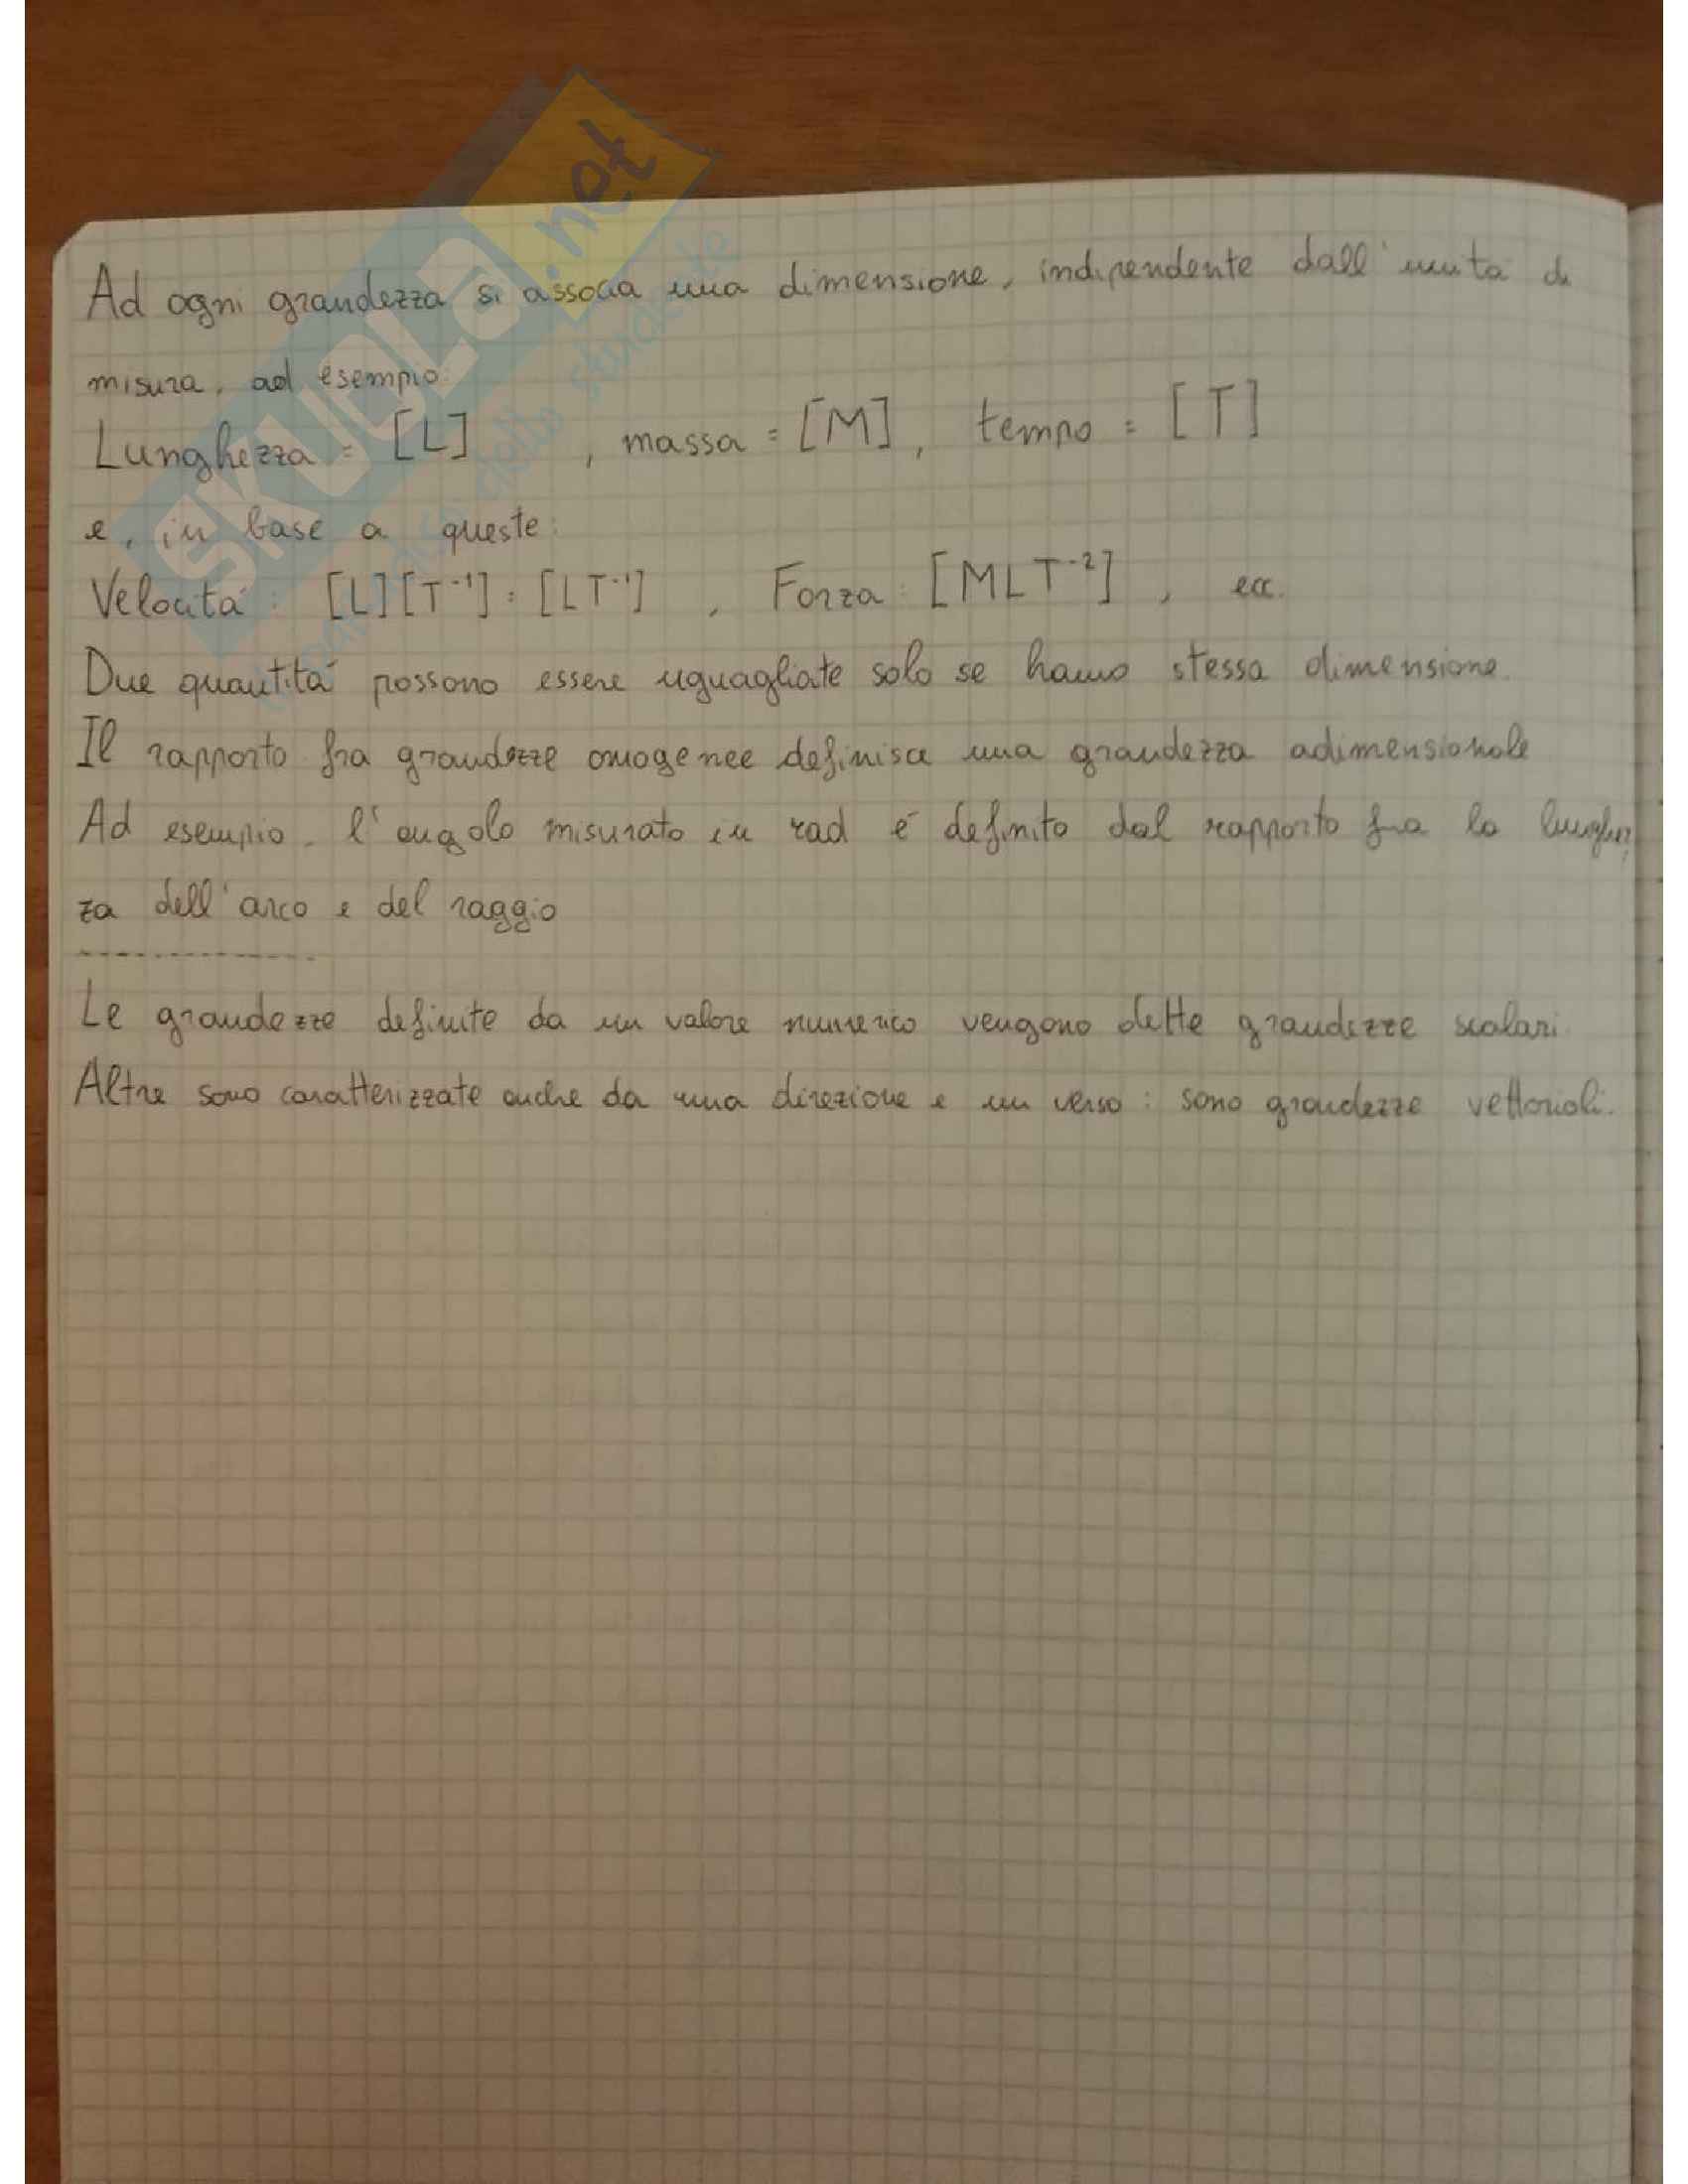 Ad ogni grandezza si associa una dimensione, indipendente dall'unità di
misura, ad esempio:
Lunghezza = [L] , massa = [M], tempo = [T]
e, in base a queste:
Velocità: [L][T⁻¹] = [LT⁻¹] , Forza: [MLT⁻²] , ecc.
Due quantità possono essere uguagliate solo se hanno stessa dimensione.
Il rapporto fra grandezze omogenee definisce una grandezza adimensionale
Ad esempio, l'angolo misurato in rad è definito dal rapporto fra la lunghez
za dell'arco e del raggio
Le grandezze definite da un valore numerico vengono dette grandezze scalari.
Altre sono caratterizzate anche da una direzione e un verso: sono grandezze vettoriali.
SKUOLA.net